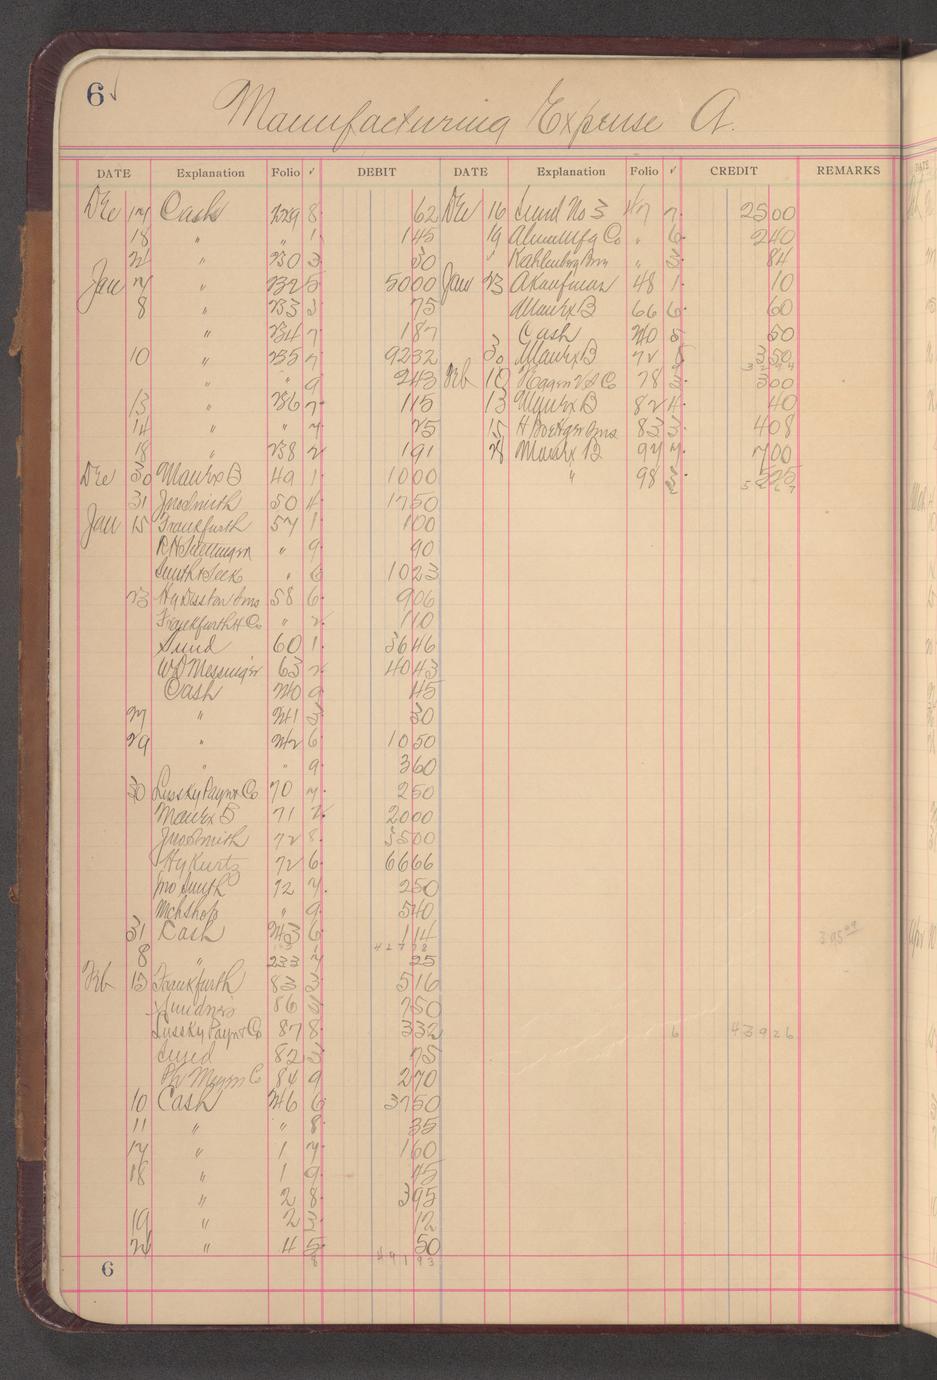 6
Manufacturing Expense A.
DATE Explanation Folio ✓ DEBIT DATE Explanation Folio ✓ CREDIT REMARKS
Dec 17 Cash 229 8 62 Dec 16 Sund No 3 47 7 2500
18 " " 1 145 19 Mfg Co " 6 240
24 " 230 3 30 " Kahlenberg Bros " 3 84
Jan 7 " 232 5 5000 Jan 23 A Kaufman 48 1 10
8 " 233 3 75 Manf Ex B 66 6 60
" 234 7 187 Cash 240 5 50
10 " 235 7 9232 30 Manf Ex B 72 350
" " 9 243 Feb 10 Co 78 3 300
13 " 236 7 115 13 Manf Ex B 82 4 40
14 " " 7 25 15 H Boettger Sons 83 3 408
18 " 238 2 191 28 Manf Ex B 97 7 700
Dec 30 Manf Ex B 49 1 1000 " 98 3 525
31 Jno Smith 50 4 1750
Jan 15 Frankfurth 57 1 100
R H " 9 90
" 6 1023
23 Hy Disston Sons 58 6 906
Frankfurth H Co " 2 110
Sund 60 1 3646
W D Messinger 63 2 4043
Cash 240 9 45
27 " 241 3 30
29 " 242 6 1050
" " 9 360
30 Lussky Payn & Co 70 7 250
Manf Ex B 71 2 2000
Jno Smith 72 8 3500
Hy Kurtz 72 6 6666
Jno Smith 72 7 250
Mch Shop " 9 540
31 Cash 243 6 114
42778
8 " 233 7 25
Feb 15 Frankfurth 83 3 516
86 5 750
Lussky Payn & Co 87 8 332 6 43926
Sund 82 3 75
Co 84 9 270
10 Cash 246 6 3750
11 " " 8 35
17 " 1 7 160
18 " 1 9 45
" 2 8 395
19 " 2 3 12
24 " 4 5 50
8 49193
6